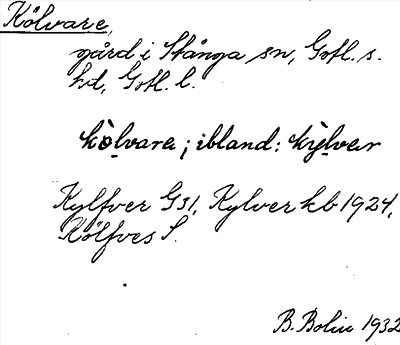 Kölvare,
gård i Stånga sn, Gotl. s.
hd, Gotl. l.
kò̤lvara; ibland: kỳ̤lvar
Kylfver G31, Kylver kb 1924,
Kölfves S.
B. Bolin 1932